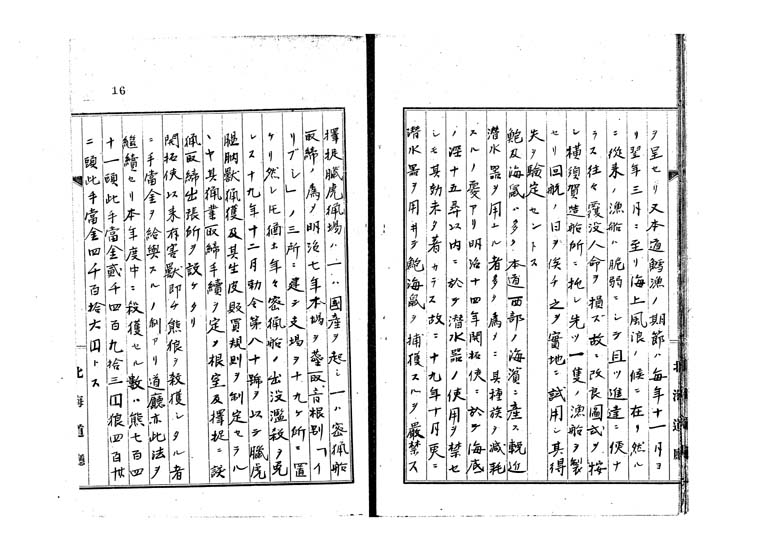 ヲ呈セリ又本道鱈漁ノ期節ハ毎年十一月ヨ
リ翌年三月ニ至リ海上風浪ノ候ニ在リ然ル
ニ従来ノ漁船ハ脆弱ニシテ且ツ進達ニ便ナ
ラス往々覆没人命ヲ損ズ故ニ改良圖式ヲ按
シ横須賀造船所ニ托シ先ツ一隻ノ漁船ヲ製
セリ回航ノ日ヲ俟チ之ヲ實地ニ試用シ其得
失ヲ驗定セントス
鮑及海鼠ハ多ク本道西部ノ海濱ニ産ス輓近
潜水器ヲ用ユル者多ク為メニ其種族ヲ減耗
スルノ憂アリ明治十四年開拓使ニ於テ海底
ノ深十五尋以内ニ於テ潜水器ノ使用ヲ禁セ
シモ其効未タ著カラス故ニ十九年十月更ニ
潜水器ヲ用井テ鮑海鼠ヲ捕獲スルヲ嚴禁ス
北海道廳
16
擇捉臘虎猟場ハ一ハ國産ヲ起シ一ハ密猟船
取締ノ為メ明治七年本場ヲ蘂取音根別「イ
リブシ」ノ三所ニ建シ支場ヲ十九ケ所ニ置
ケリ然レモ猶ホ年々密猟船ノ出没濫殺ヲ免
レス十九年十二月勅令第八十號ヲ以テ臘虎
膃肭獣猟獲及其生皮販買規則ヲ制定セラル
ヽヤ其猟業取締手續ヲ定メ根室及擇捉ニ設
猟取締出張所ヲ設ケタリ
開拓使以来有害獣即チ熊狼ヲ殺獲シタル者
ニ手當金ヲ給與スルノ制アリ道廳亦此法ヲ
繼續セリ本年度中ニ殺獲セル數ハ熊七百四
十一頭此手當金貳千四百九拾三圓狼四百卅
二頭此手當金四千百拾六圓トス
北海道廳